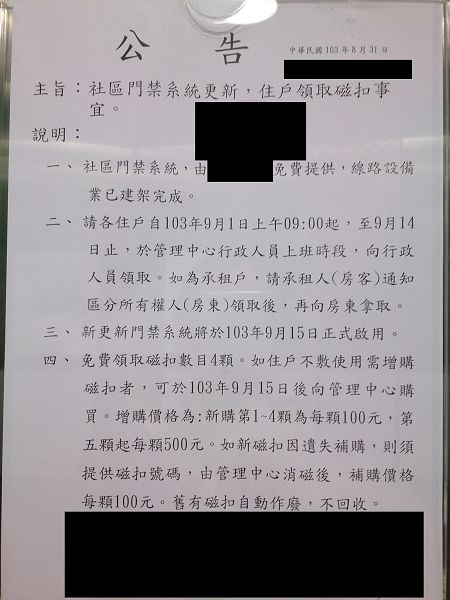 公告
中華民國103年8月31日
主旨：社區門禁系統更新，住戶領取磁扣事
宜。
說明：
一、社區門禁系統，由 免費提供，線路設備
業已建架完成。
二、請各住戶自103年9月1日上午09:00起，至9月14
日止，於管理中心行政人員上班時段，向行政
人員領取。如為承租戶，請承租人(房客)通知
區分所有權人(房東)領取後，再向房東拿取。
三、新更新門禁系統將於103年9月15日正式啟用。
四、免費領取磁扣數目4顆。如住戶不敷使用需增購
磁扣者，可於103年9月15日後向管理中心購
買。增購價格為:新購第1~4顆為每顆100元，第
五顆起每顆500元。如新磁扣因遺失補購，則須
提供磁扣號碼，由管理中心消磁後，補購價格
每顆100元。舊有磁扣自動作廢，不回收。